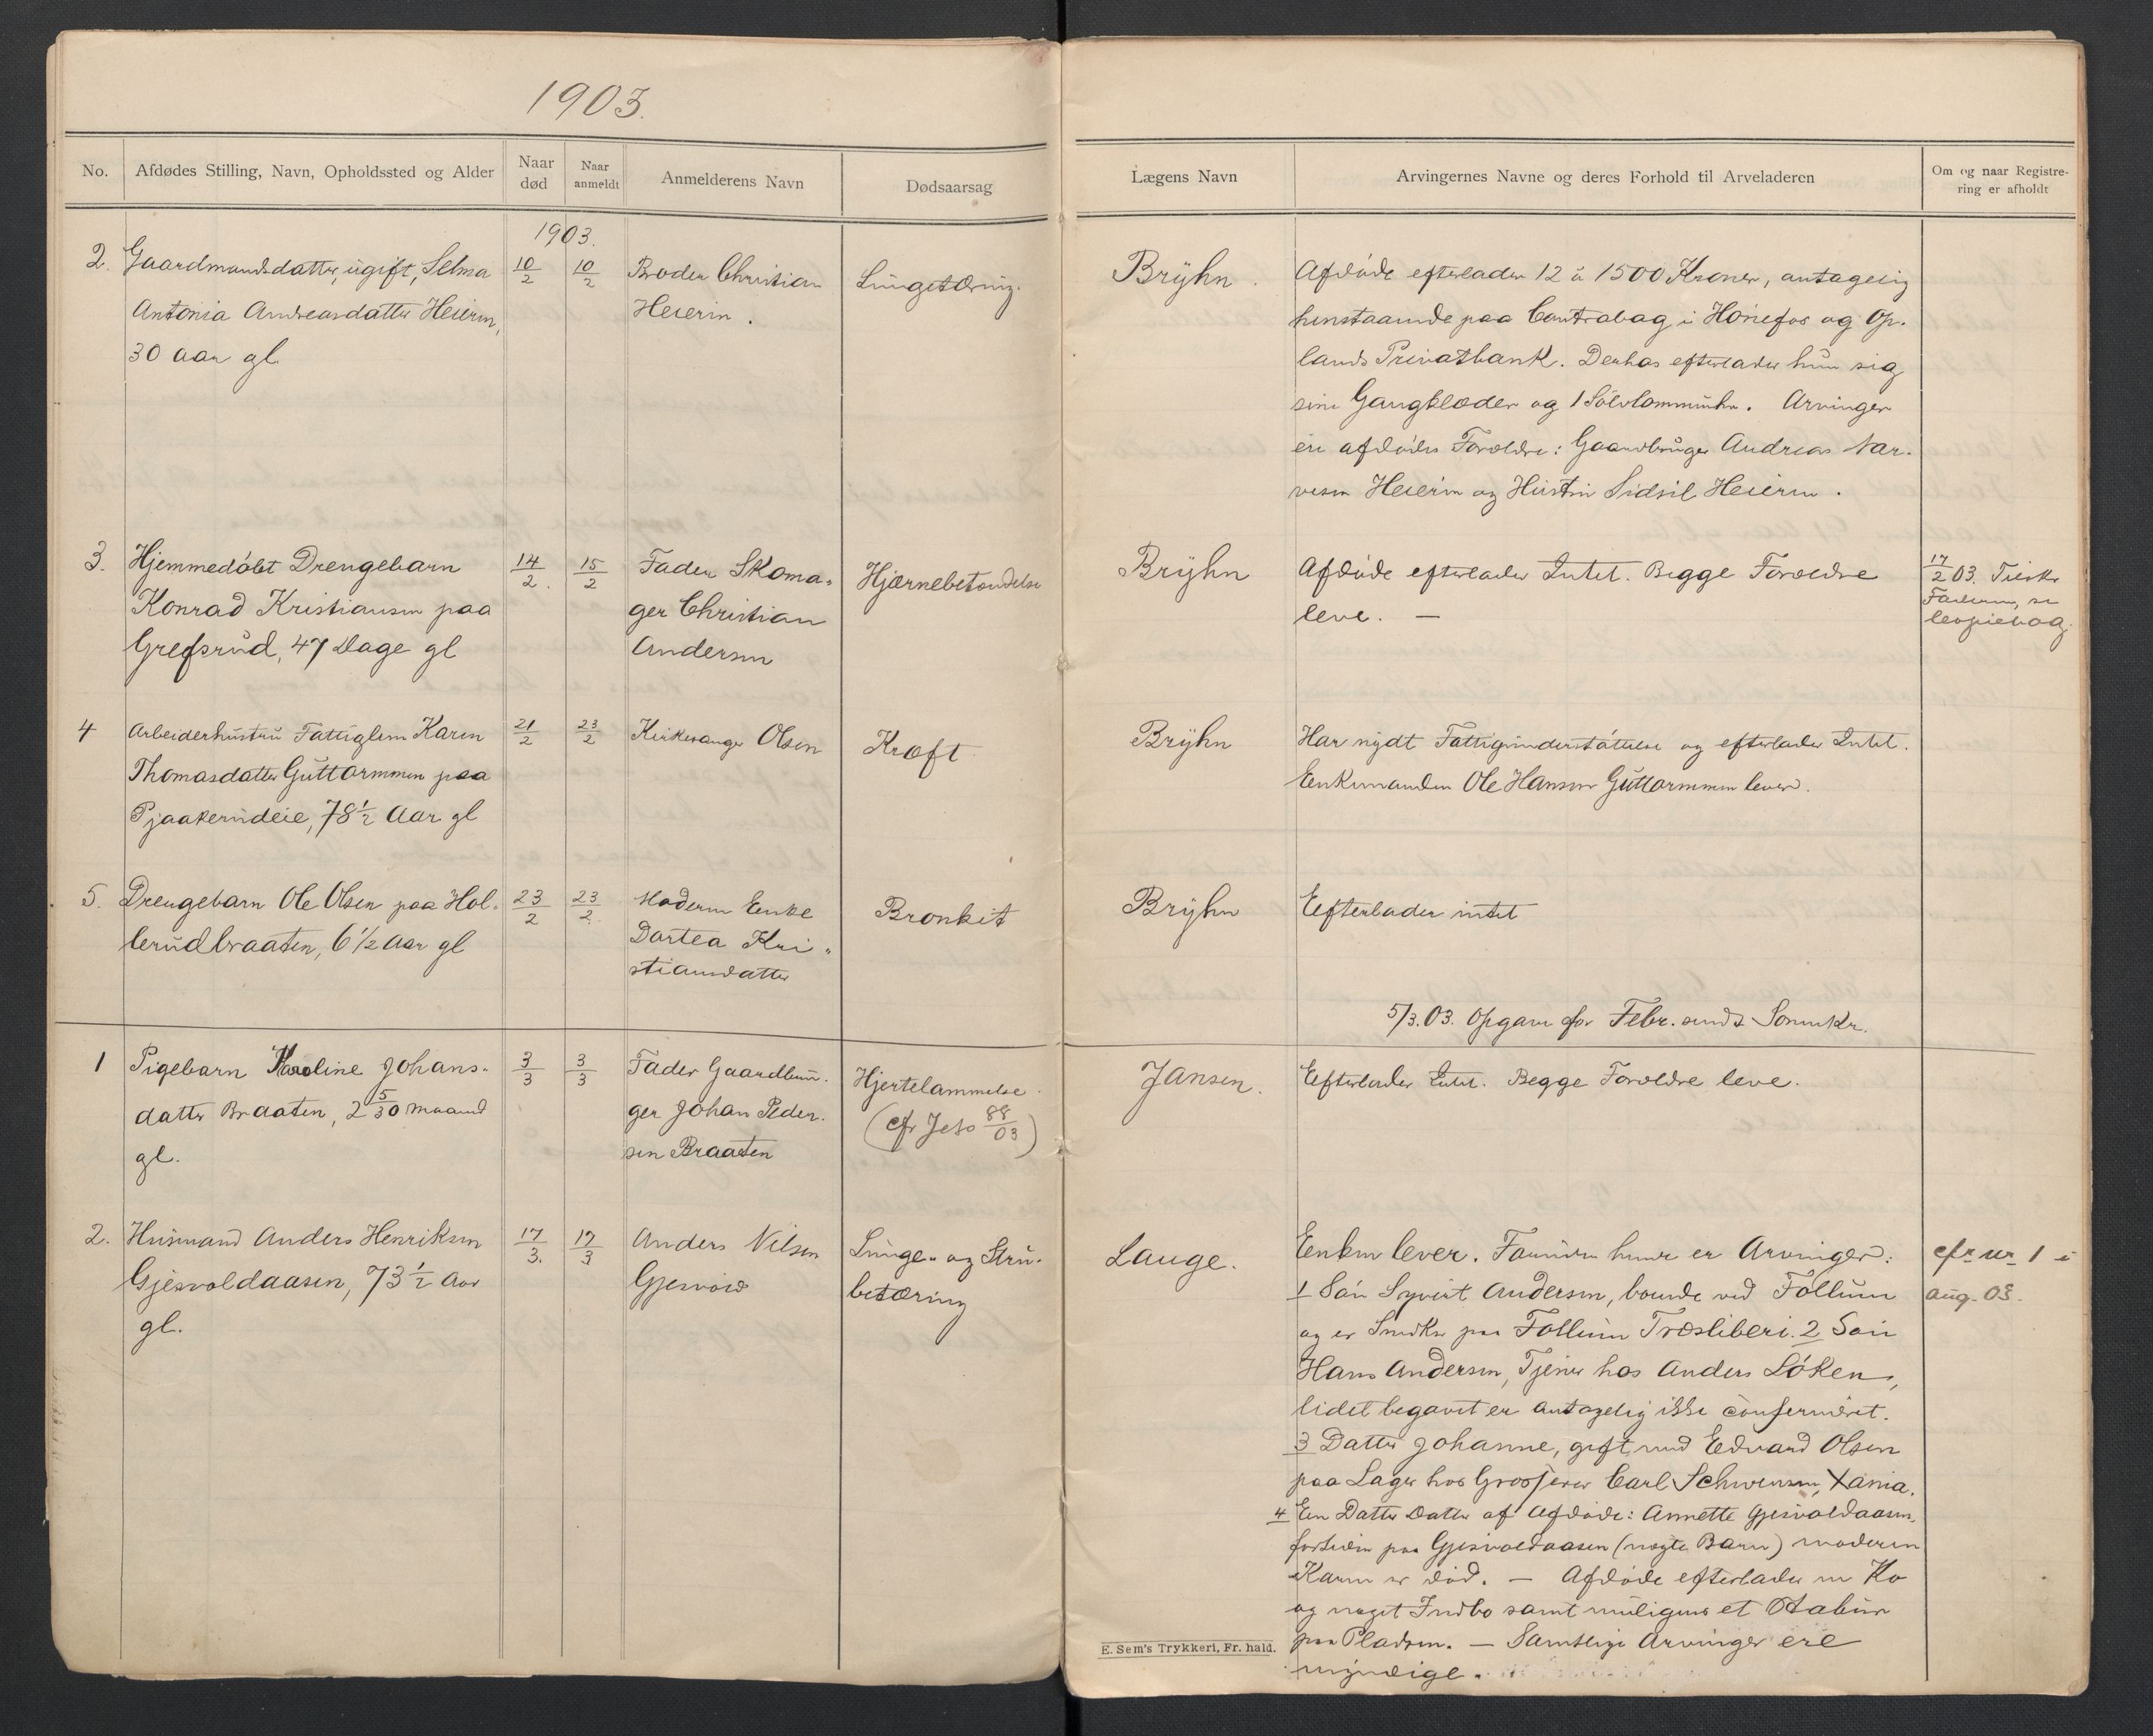 1903.
No. Afdødes Stilling, Navn, Opholdssted og Alder Naar død Naar anmeldt Anmelderens Navn Dødsaarsag
1903.
2. Gaardmandsdatter, ugift, Selma 10/2 10/2 Broder Christian Lungetæring.
Antonia Andreasdatter Heieren, Heieren.
30 aar gl
3. Hjemmedøbt Drengebarn 14/2. 15/2 Fader Skoma- Hjærnebetændelse
Konrad Kristiansen paa ger Christian
Grefsrud, 47 Dage gl Andersen
4 Arbeiderhustru Fattiglem Karen 21/2 23/2 Kirkesanger Olsen Kræft
Thomasdatter Guttormsen paa
Pjaakerudeie, 78 1/2 Aar gl
5. Drengebarn Ole Olsen paa Hol- 23/2 23/2. Moderen Enke Bronkit
lerudbraaten, 6 1/2 Aar gl Dortea Kri-
stiansdatter
1 Pigebarn Karoline Johans- 3/3 3/3 Fader Gaardbru- Hjertelammelse.
datter Braaten, 2 5/30 maaned ger Johan Peder- (cfr Jeso 88/03)
gl. sen Braaten
2. Husmand Anders Henriksen 17/3. 17/3 Anders Nilsen Lunge- og Stru-
Gjesvoldaasen, 73 1/2 Aar Gjesvold betæring
gl.
Lægens Navn Arvingernes Navne og deres Forhold til Arveladeren Om og naar Registre-
ring er afholdt
Bryhn. Afdøde efterlader 12 à 1500 Kroner, antagelig
henstaaende paa Contrabog i Hönefos og Op-
lands Privatbank. Derhos efterlader hun sig
sine Gangklæder og 1 Sölvlommeuhr. Arvinger
ere afdödes Forældre: Gaardbruger Andreas Nar-
vesen Heieren og Hustru Sidsil Heieren.
Bryhn Afdøde efterlader Intet. Begge Forældre 17/2 03.
leve. —
Faderen, se
kopiebog.
Bryhn Har nydt Fattigunderstøttelse og efterlader Intet.
Enkemanden Ole Hansen Guttormsen lever.
Bryhn Efterlader intet
5/3.03. Opgave for Febr. sendt Sorenskr.
Jansen. Efterlader Intet. Begge Forældre leve.
Lauge. Enken lever. Foruden hende er Arvinger: cfr nr 1 i
1 Sön Syvert Andersen, boende ved Follum aug. 03.
og er Snedker paa Follum Træsliberi. 2 Sön
Hans Andersen, Tjener hos Anders Löken,
lidet begavet er antagelig ikke confermeret.
3 Datter Johanne, gift med Edvard Olsen
paa Lager hos Grosserer Carl Schwensen, Xania.
4 En Datter Datter af Afdøde: Annette Gjesvoldaasen,
fortiden paa Gjesvoldaasen (uægte Barn) moderen
Karen er död. — Afdöde efterlader en Ko
og noget Indbo samt muligens et Stabur
paa Pladsen. — Samtlige Arvinger ere
myndige.
E. Sem's Trykkeri, Fr. hald.